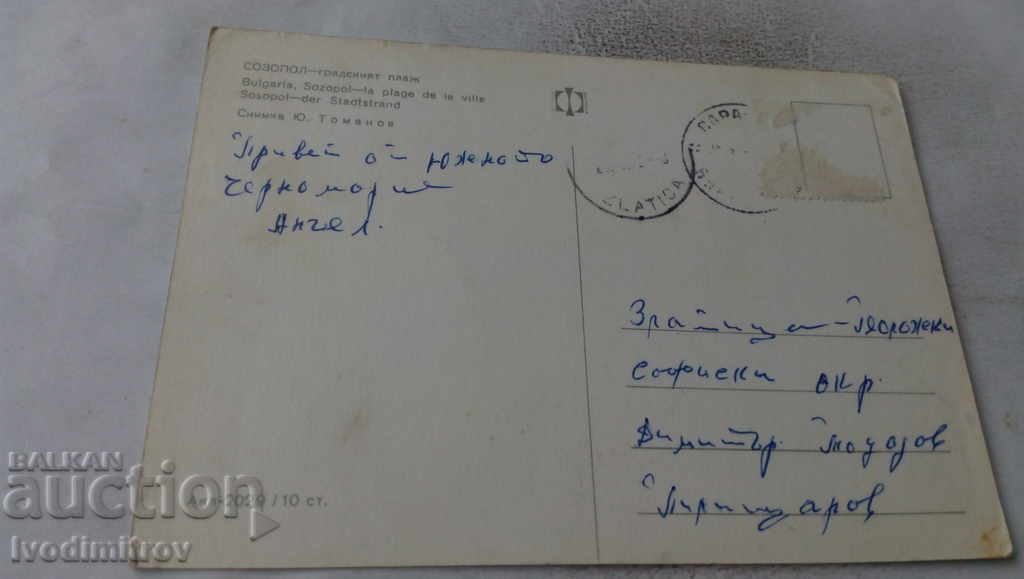 СОЗОПОЛ—градският плаж
Bulgaria, Sozopol—la plage de la ville
Sosopol—der Stadtstrand
Снимка Ю. Томанов
Привет от южното
Черноморие
Ангел.
ZLATICA
Златица-
Софийски окр.
Димитър
Пирищаров
Акл-2029 / 10 ст.
BALKAN
auction
Ivodimitrov